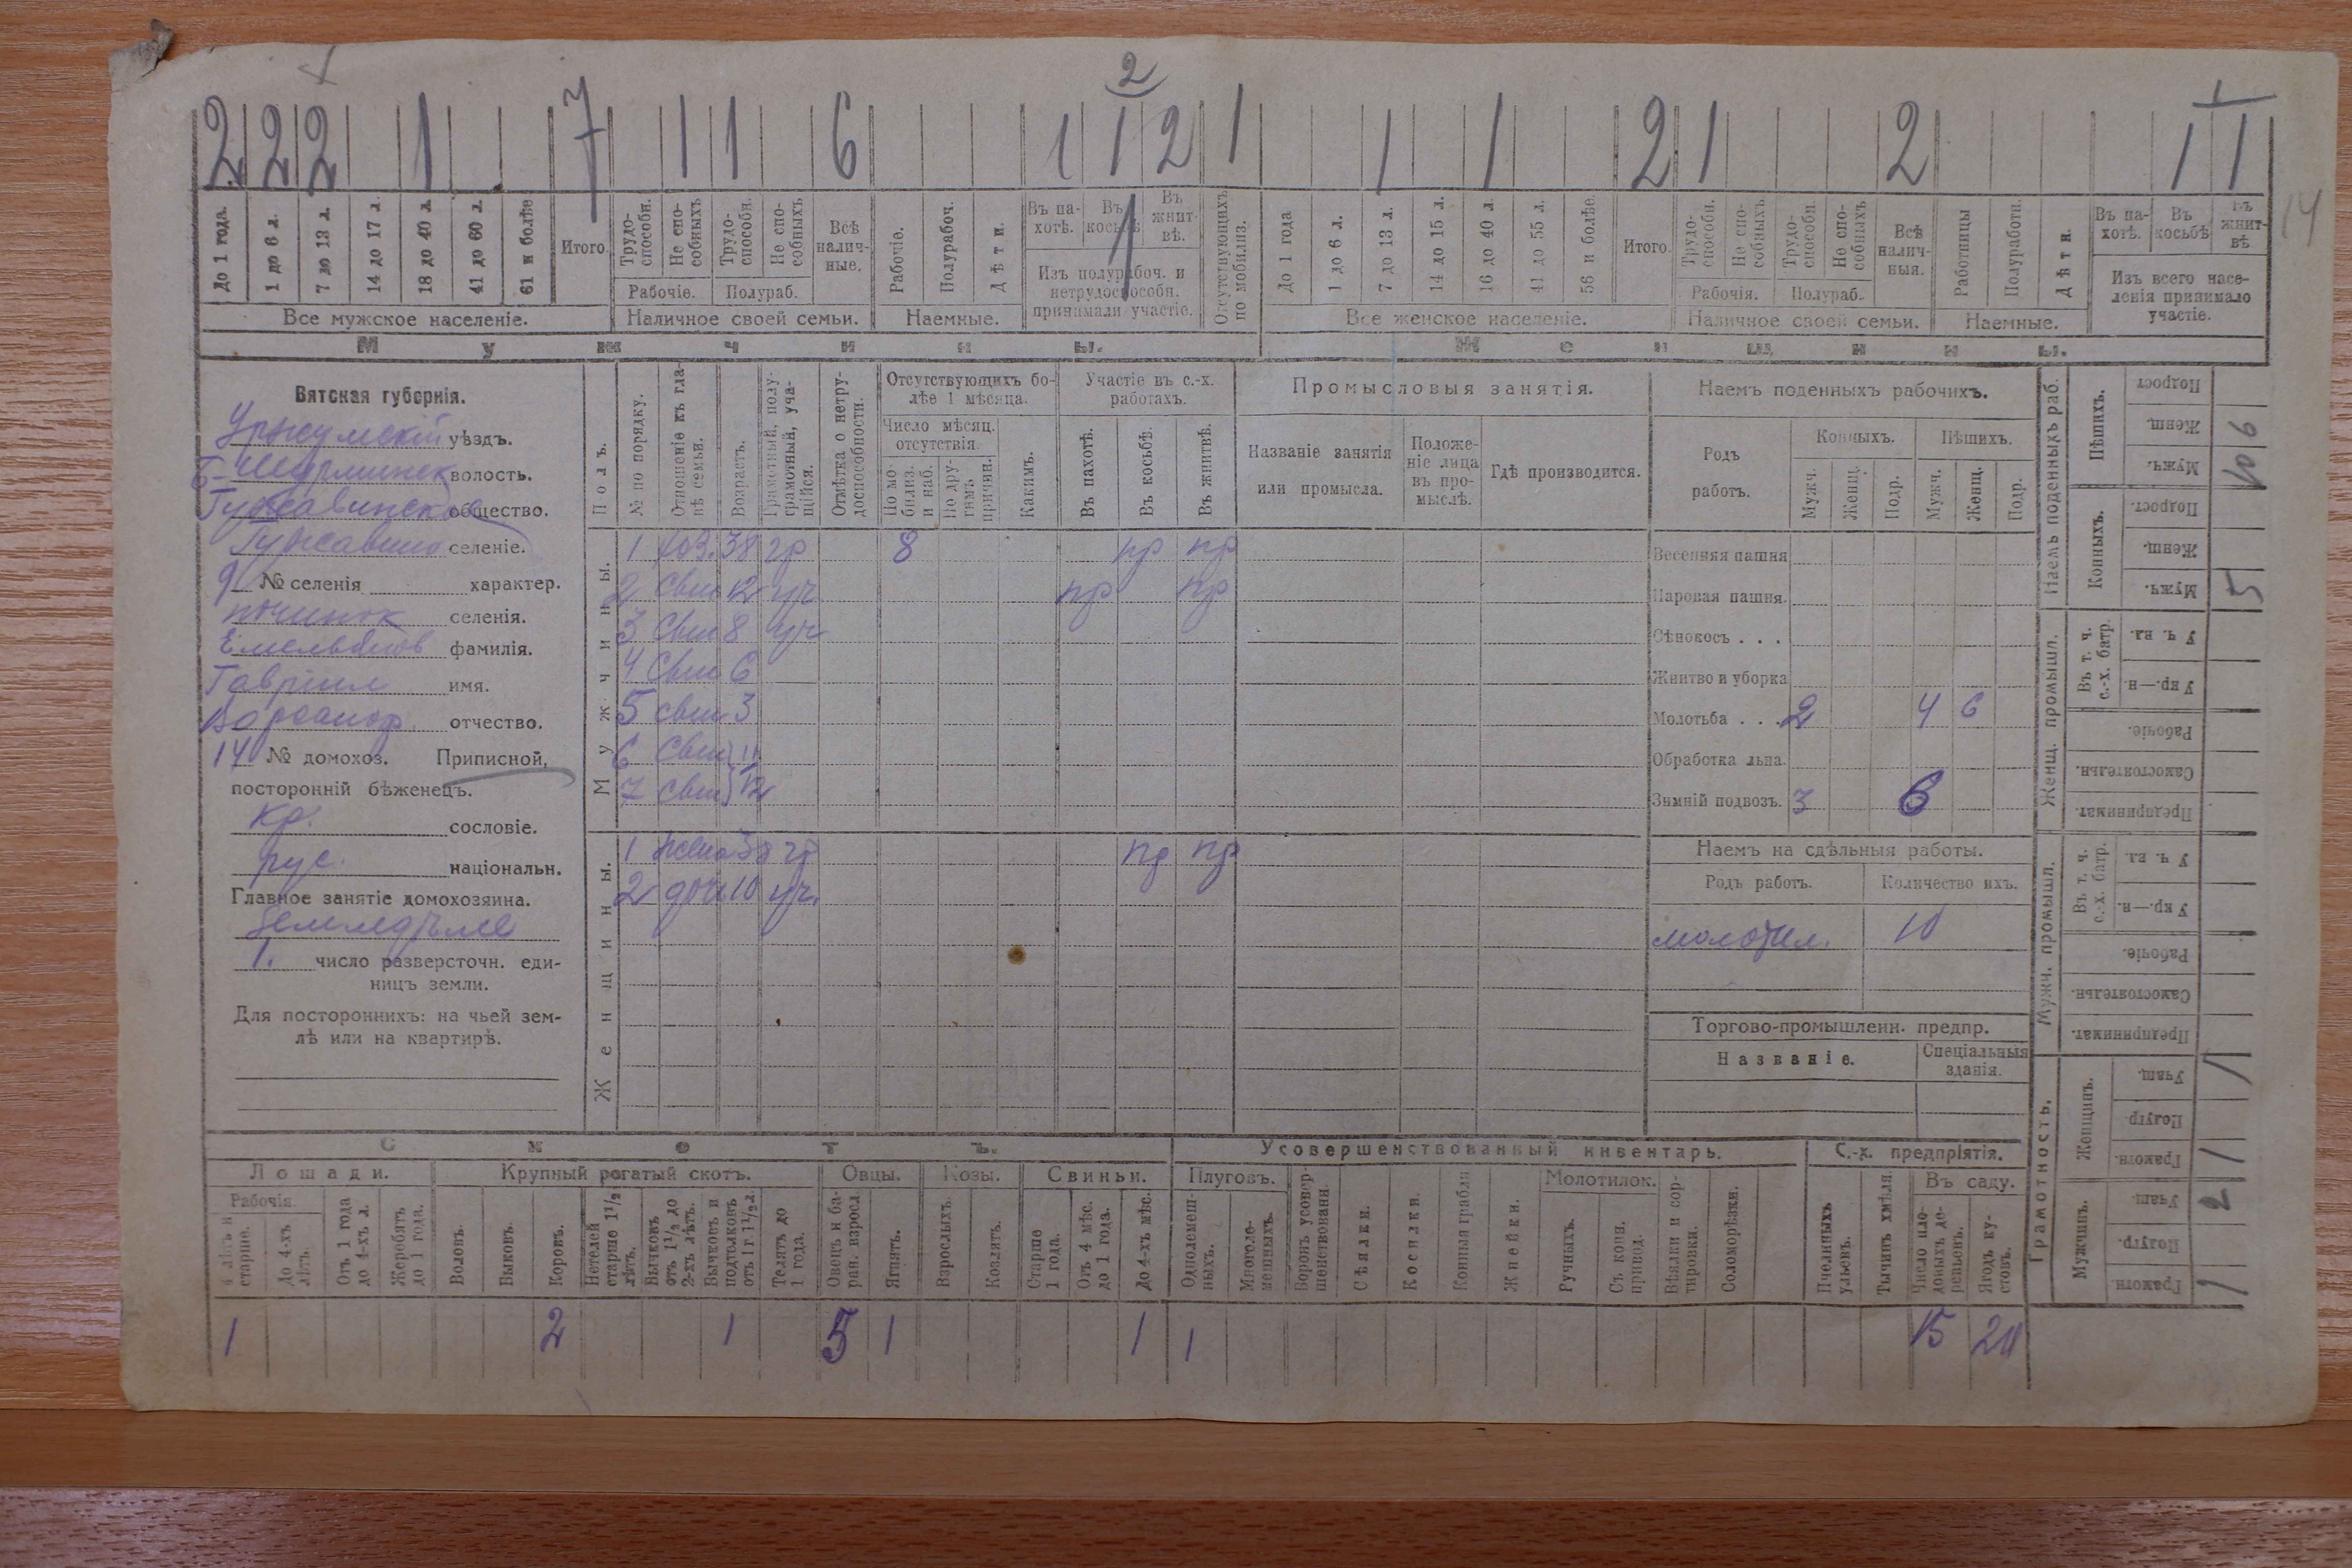 2
2 2 2 1 7 1 1 6 1 1 2 1 1 1 2 1 2 1 1
До 1 года. 1 до 6 л. 7 до 13 л. 14 до 17 л. 18 до 40 л. 41 до 60 л. 61 и болѣе Итого.
Трудо-способн. Не спо-собныхъ Трудо-способн. Не спо-собныхъ Всѣ налич-ные.
Рабочіе. Полураб.
Рабочіе. Полурабоч. Дѣти.
Въ па-хотѣ. Въ косьбѣ Въ жнит-вѣ.
Изъ полурабоч. и нетрудоспособн. принимали участіе.
Отсутствующихъ по мобилиз.
До 1 года 1 до 6 л. 7 до 13 л. 14 до 15 л. 16 до 40 л. 41 до 55 л. 56 и болѣе. Итого.
Трудо-способн. Не спо-собныхъ Трудо-способн. Не спо-собныхъ Всѣ налич-ныя.
Рабочія. Полураб.
Работницы Полуработн. Дѣти.
Въ па-хотѣ. Въ косьбѣ Въ жнит-вѣ.
Изъ всего насе-ленія принимало участіе.
14
Все мужское населеніе. Наличное своей семьи. Наемные. Все женское населеніе. Наличное своей семьи. Наемные.
Мужчины. Женщины.
Вятская губернія.
Уржумскій уѣздъ.
Б-Шурминск волость.
Гужавинское общество.
Гужавино селеніе.
9 № селенія характер.
починок селенія.
Емельянов фамилія.
Гавріил имя.
Варсаноф. отчество.
14 № домохоз. Приписной,
посторонній бѣженецъ.
кр. сословіе.
рус. національн.
Главное занятіе домохозяина.
Земледѣліе
1. число разверсточн. еди-
ницъ земли.
Для постороннихъ: на чьей зем-
лѣ или на квартирѣ.
Полъ. № по порядку. Отношеніе къ гла-вѣ семьи. Возрастъ. Грамотный, полу-грамотный, уча-щійся. Отмѣтка о нетру-доспособности.
Отсутствующихъ бо-лѣе 1 мѣсяца.
Число мѣсяц. отсутствія.
По мо-билиз. и наб. По дру-гимъ причин. Какимъ.
Участіе въ с.-х. работахъ.
Въ пахотѣ. Въ косьбѣ. Въ жнитвѣ.
Промысловыя занятія.
Названіе занятія или промысла. Положе-ніе лица въ про-мыслѣ. Гдѣ производится.
Мужчины.
1 хоз. 38 гр 8 пр пр
2 свш 12 уч пр пр
3 свш 8 уч
4 свш 6
5 свш 3
6 свш } 11
7 свш } 12
Женщины.
1 жена 38 гр пр пр
2 доч 10 уч.
Наемъ поденныхъ рабочихъ.
Родъ работъ. Конныхъ. Пѣшихъ.
Мужч. Женщ. Подр. Мужч. Женщ. Подр.
Весенняя пашня
Паровая пашня.
Сѣнокосъ . . .
Жнитво и уборка
Молотьба . . . 2 4 6
Обработка льна.
Зимній подвозъ. 3 6
Наемъ на сдѣльныя работы.
Родъ работъ. Количество ихъ.
молотил. 10
Торгово-промышленн. предпр.
Названіе. Спеціальныя зданія.
Наемъ поденныхъ раб.
Пѣшихъ. Подрост Женщ. 6 Мужч. 10
Конныхъ. Подрост. Женщ. Мужч. 5
Женщ. промышл.
Въ т. ч. с.-х. батр. У ч. вл. У кр.—н.
Рабочіе. Самостоятельн. Предпринимат.
Мужч. промышл.
Въ т. ч. с.-х. батр. У ч. вл. У кр.—н.
Рабочіе. Самостоятельн. Предпринимат.
Грамотность.
Женщинъ. Учащ. 1 Полугр. Грамотн. 1
Мужчинъ. Учащ. 2 Полугр. Грамотн. 1
Скотъ. Усовершенствованный инвентарь. С.-х. предпріятія.
Лошади. Крупный рогатый скотъ. Овцы. Козы. Свиньи. Плуговъ. Молотилок. Въ саду.
Рабочія.
4 лѣтъ и старше. До 4-хъ лѣтъ. Отъ 1 года до 4-хъ л. Жеребятъ до 1 года.
Воловъ. Быковъ. Коровъ. Нетелей старше 1½ лѣтъ. Бычковъ отъ 1½ до 2-хъ лѣтъ. Бычковъ и подтелковъ отъ 1 г. 1½ л. Телятъ до 1 года.
Овецъ и ба-ран. взросл. Ягнятъ. Взрослыхъ. Козлятъ. Старше 1 года. Отъ 4 мѣс. до 1 года. До 4-хъ мѣс.
Однолемеш-ныхъ. Многоле-мешныхъ. Боронъ усовер-шенствованн. Сѣялки. Косилки. Конныя грабли Жнейки. Ручныхъ. Съ конн. привод. Вѣялки и сор-тировки. Соломорѣзки.
Пчелиныхъ ульевъ. Тычинъ хмѣля. Число пло-довыхъ де-ревьевъ. Ягодъ ку-стовъ.
1 2 1 5 1 1 1 15 20